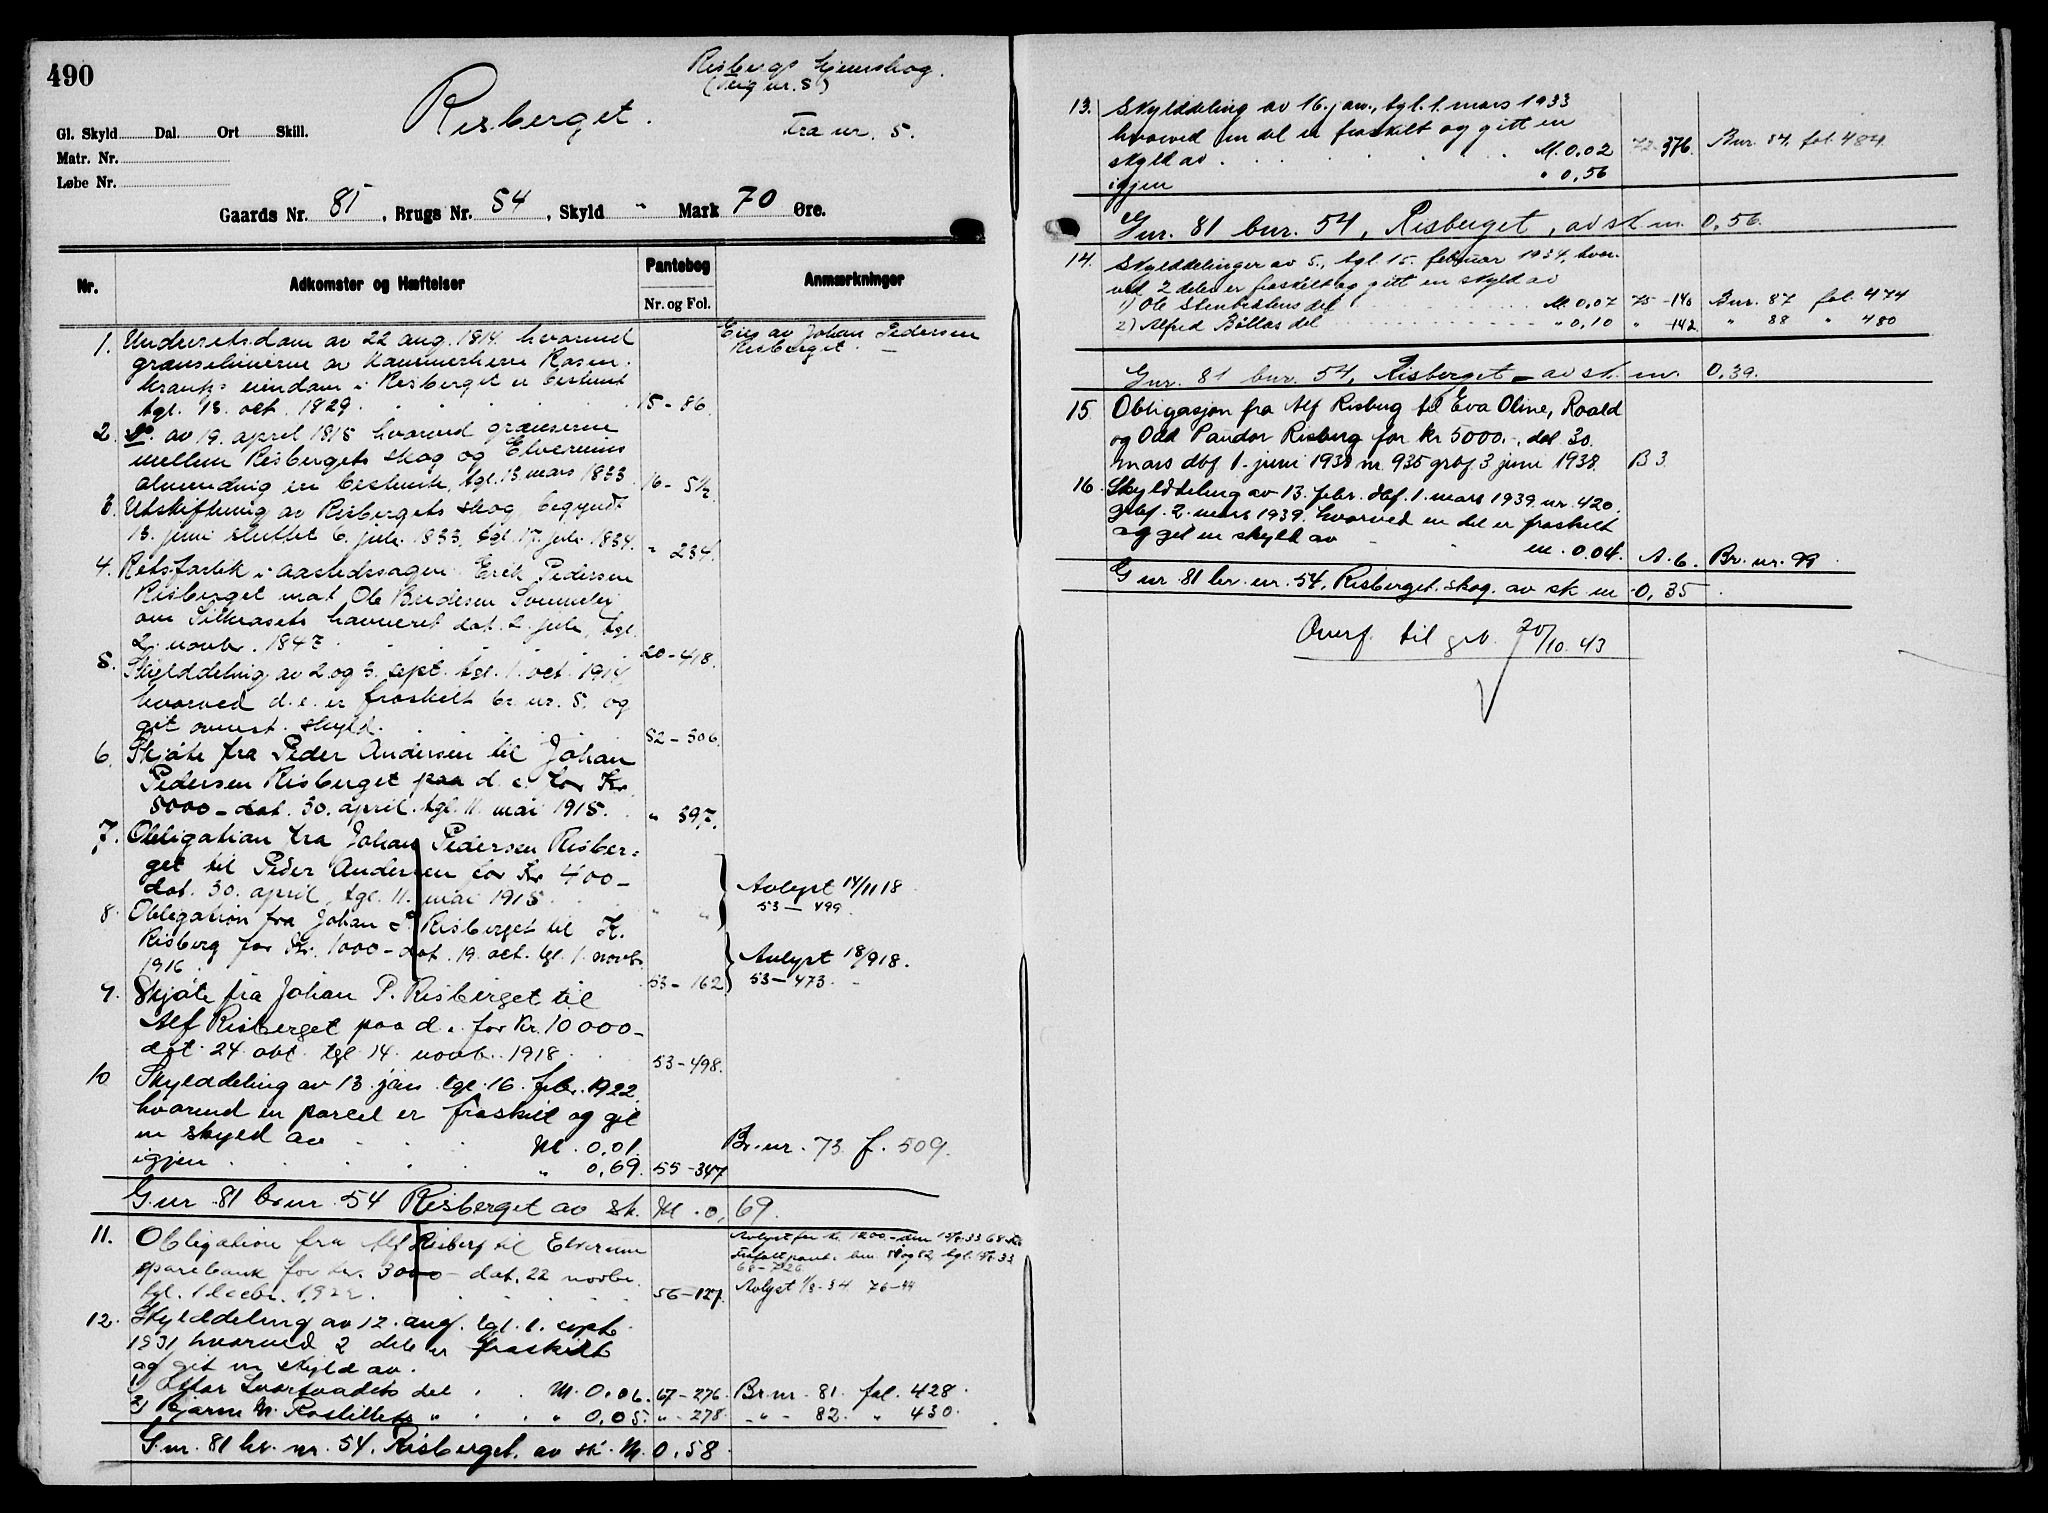 490
Risbergs hjemskog.
(Teig nr. 8)
Risberget.
fra nr. 5.
Gl. Skyld Dal. Ort Skill.
Matr. Nr.
Løbe Nr.
Gaards Nr. 81, Brugs Nr. 54, Skyld " Mark 70 Øre.
Nr. Adkomster og Hæftelser Pantebog Nr. og Fol. Anmærkninger
1. Underretsdom av 22 aug. 1814 hvorved Eies av Johan Pedersen
grænselinierne av Kammerherre Rosen- Risberget. —
krantz eiendom i Risberget er bestemt
tgl. 13. oct. 1829. 15-86.
2. Do. av 19. april 1815 hvorved grænserne
mellem Risbergets skog og Elverums
almending er bestemt, tgl. 13 mars 1833. 16-
3. Utskiftning av Risbergets skog, begyndt
13. juni sluttet 6. juli 1833. tgl. 17. juli 1834. " 234.
4. Retsforlik i aastedssagen Erik Pedersen
Risberget mot Ole
om havneret dat. 2. juli, tgl.
2. novbr. 1847. 20-418.
5. Skylddeling av 2 og 3. sept. tgl. 1. oct. 1914,
hvorved d. e. er fraskilt br. nr. 5. og
git ovenst. skyld. 52-306.
6. Skjøte fra Peder Andersen til Johan
Pedersen Risberget paa d. e. for Kr.
5000 – dat. 30. april. tgl. 11. mai 1915. " 397.
7. Obligation fra Johan Pedersen Risber-
get til Peder Andersen for Kr 400–
dat. 30. april, tgl. 11. mai 1915. " " Avlyst 14/11 18
53 — 499.
8. Obligation fra Johan P. Risberget til K.
Risberg for Kr. 1000 – dat. 19. oct. tgl. 1. novbr. Avlyst 18/9 18.
1916. 53-162 53-473. –
9. Skjøte fra Johan P. Risberget til
Alf Risberget paa d. e. for Kr. 10 000–
dat. 24. okt. tgl. 14. novb. 1918. 53-498.
10 Skylddeling av 13. jan. tgl. 16. febr. 1922.
hvorved en parcel er fraskilt og git
en skyld av M. 0,01. Br. nr. 73. f. 509.
igjen " 0,69. 55-347
G. nr. 81 br. nr. 54 Risberget av sk. M. 0,69.
11. Obligation fra Alf Risberg til Elverum Avlyst for kr. 1200.- den
sparebank for kr. 3000 – dat. 22 novbr. Frafalt pant i bnr. og 82, tgl.
tgl. 1 decbr. 1922. 56-127. Avlyst 1/8-34 76-44
12. Skylddeling av 12. aug. tgl. 1. sept.
1931, hvorved 2 dele er fraskilt
og git en skyld av.
1) Svartvadets del M. 0,06. 67-276. Br. nr. 81. fol. 428.
2) Bjarne M. " " 0,05. " - 278. - " - 82. " 430.
G. nr. 81 br. nr. 54. Risberget. av sk. M. 0,58.
13. Skylddeling av 16. jan., tgl. 1. mars 1933
hvorved en del er fraskilt og gitt en
skyld av M. 0.02 72-376. Bnr. 84, fol. 484.
igjen " 0,56
Gnr. 81 bnr. 54, Risberget, av sk m. 0,56.
14. Skylddelinger av 5., tgl. 15. februar 1934, hvor-
ved 2 deler er fraskilt og gitt en skyld av
1) Ole Stenbertens del M. 0,07 75-140 Bnr. 87 fol. 474
2) Alfred Böllas del " 0,10 " -142. " 88 " 480
Gnr. 81 bnr. 54, Risberget – av sk. m. 0,39.
15 Obligasjon fra Alf Risberg til Eva Oline, Roald
og Odd Pandor Risberg for kr 5000.-, dat 30.
mars dbf 1. juni 1938 nr. 935 grbf. 3 juni 1938. B 3.
16. Skylddeling av 13. febr. dbf. 1. mars 1939 nr. 420.
grbf. 2. mars 1939. hvorved en del er fraskilt
og git en skyld av m. 0.04. A. 6. Br. nr. 99
G nr. 81 br. nr. 54, Risberget. skog. av sk m 0,35.
Overf. til grb. 20/10. 43